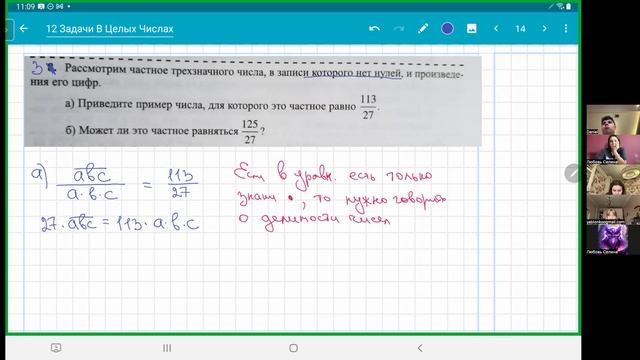 11:09
82%
12 Задачи В Целых Числах
14
3. Рассмотрим частное трехзначного числа, в записи которого нет нулей, и произведе-
ния его цифр.
а) Приведите пример числа, для которого это частное равно 113/27.
б) Может ли это частное равняться 125/27?
а) abc / a·b·c = 113/27
27·abc = 113·a·b·c
Если в уравн. есть только
знаки •, то нужно говорить
о делимости чисел
Daniel
Любовь Селина
Любовь Селина